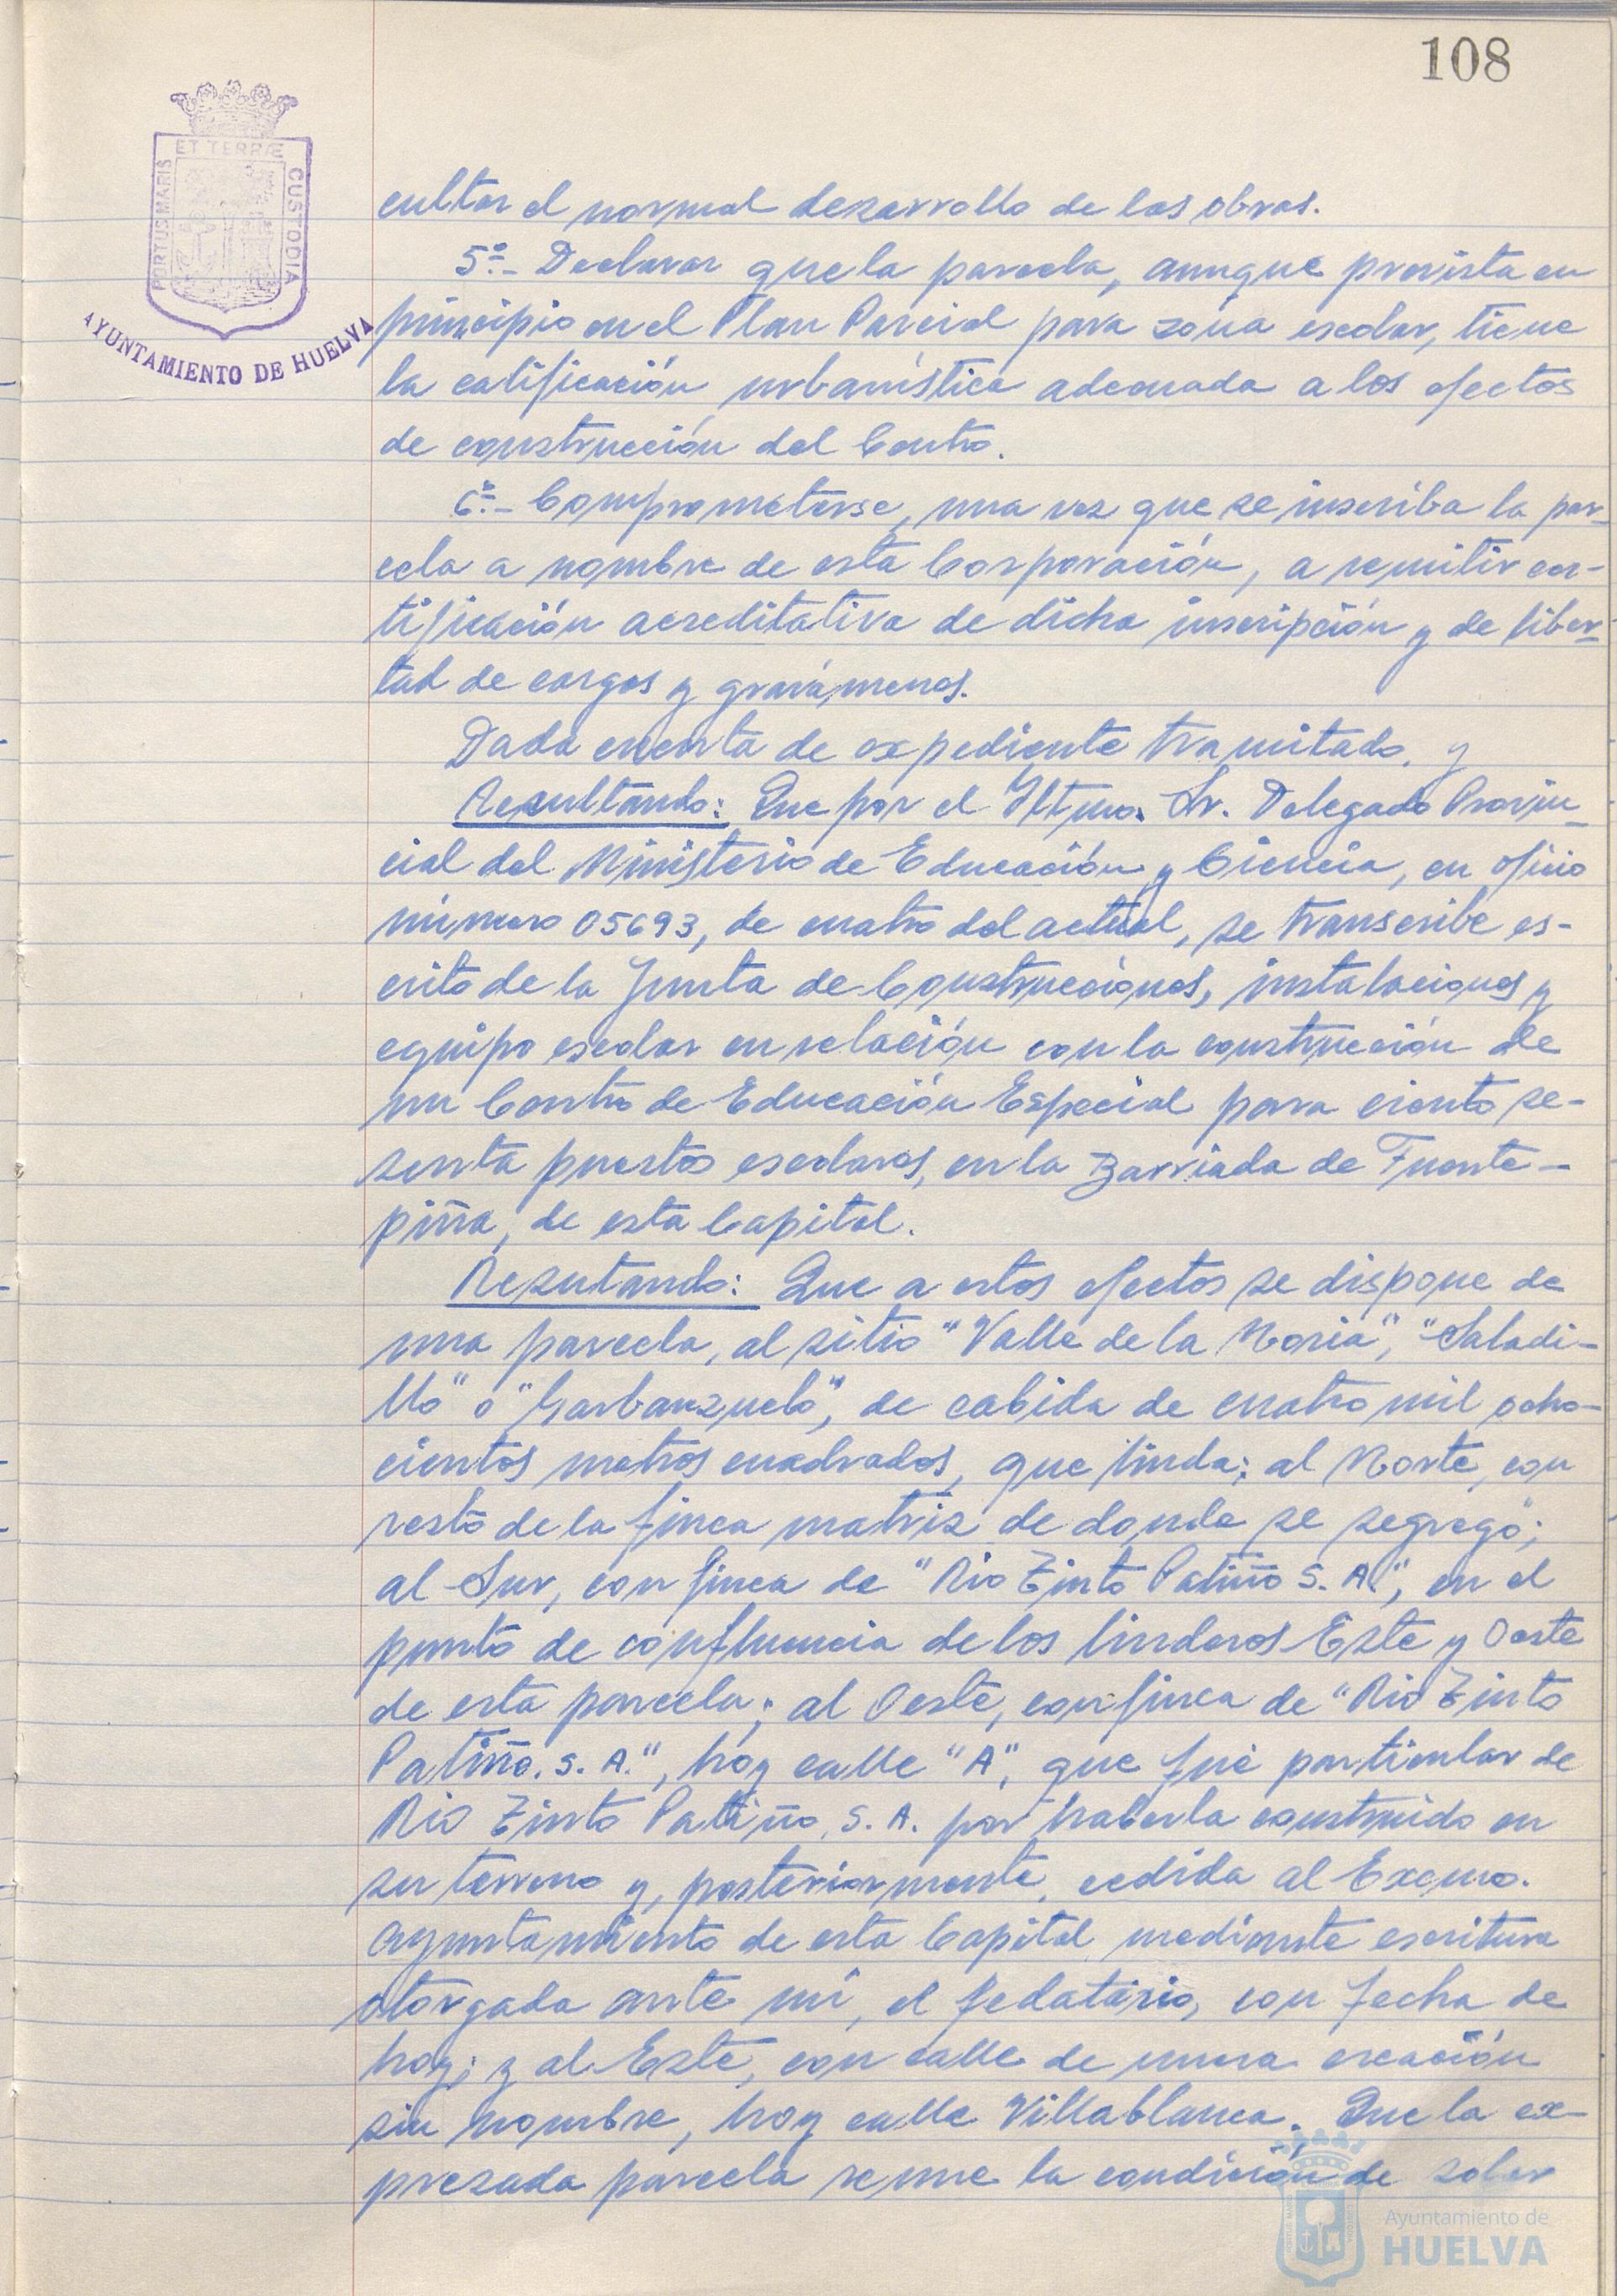 108
PORTUS MARIS ET TERRÆ CUSTODIA
AYUNTAMIENTO DE HUELVA
cultar el normal desarrollo de las obras.
5º.- Declarar que la parcela, aunque prevista en
principio en el Plan Parcial para zona escolar, tiene
la calificación urbanística adecuada a los efectos
de construcción del Centro.
6º.- Comprometerse, una vez que se inscriba la par-
cela a nombre de esta Corporación, a remitir cer-
tificación acreditativa de dicha inscripción y de liber-
tad de cargas y gravámenes.
Dada cuenta de expediente tramitado, y
Resultando: Que por el Iltmo. Sr. Delegado Provin-
cial del Ministerio de Educación y Ciencia, en oficio
número 05693, de cuatro del actual, se transcribe es-
crito de la Junta de Construcciones, instalaciones y
equipo escolar en relación con la construcción de
un Centro de Educación Especial para ciento se-
senta puestos escolares, en la Barriada de Fuente-
piña, de esta Capital.
Resutando: Que a estos efectos se dispone de
una parcela, al sitio "Valle de la Noria", "Saladi-
llo" o "Garbanzuelo", de cabida de cuatro mil ocho-
cientos metros cuadrados, que linda: al Norte, con
resto de la finca matriz de donde se segregó;
al Sur, con finca de "Rio Tinto Patiño S. A.", en el
punto de confluencia de los linderos Este y Oeste
de esta parcela; al Oeste, con finca de "Rio Tinto
Patiño. S. A.", hoy calle "A", que fué particular de
Rio Tinto Patiño, S. A. por haberla construido en
su terreno y, posteriormente, cedida al Excmo.
Ayuntamiento de esta Capital mediante escritura
otorgada ante mí, el fedatario, con fecha de
hoy; y al Este, con calle de nueva creación
sin nombre, hoy calle Villablanca. Que la ex-
presada parcela reune la condición de solar
Ayuntamiento de
HUELVA